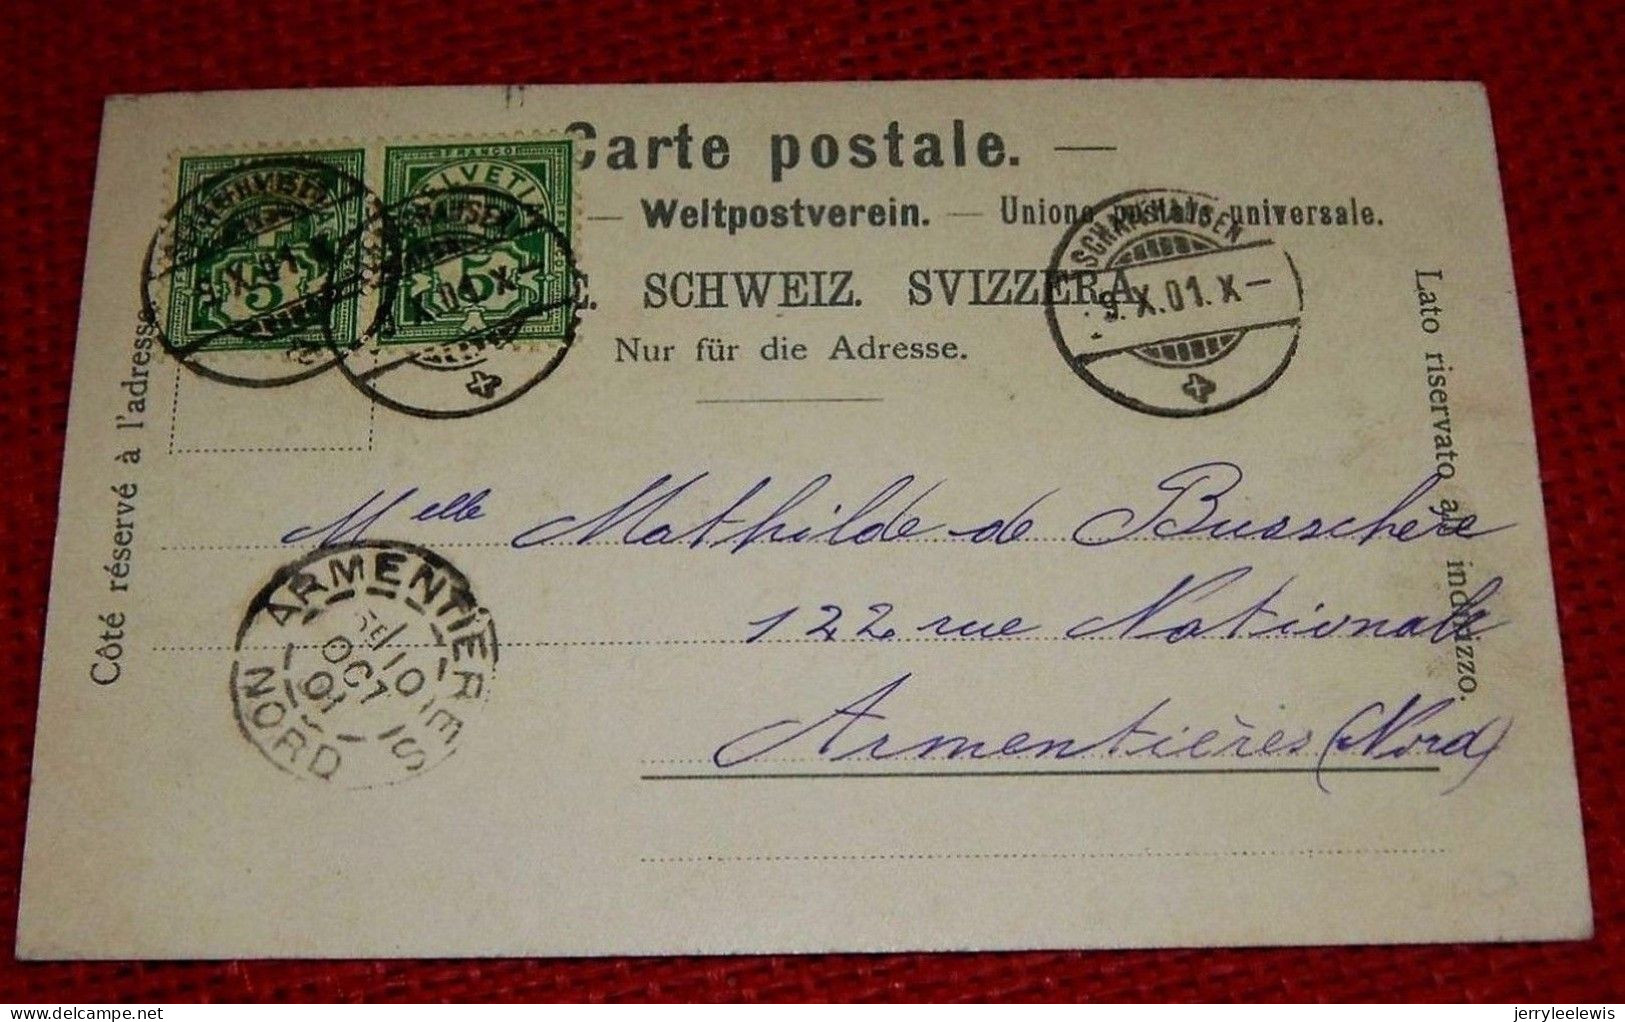 Carte postale. —
— Weltpostverein. — Unione postale universale.
E. SCHWEIZ. SVIZZERA.
Nur für die Adresse.
Côté réservé à l'adresse.
Lato riservato all' indirizzo.
FRANCO
HELVETIA
5
5
SCHAFFHAUSEN
9.X.01.X—
SCHAFFHAUSEN
9.X.01.X—
SCHAFFHAUSEN
9.X.01.X—
Melle Mathilde de Busschère
122 rue Nationale
Armentières (Nord)
ARMENTIERES
10
OCT
01
NORD
jerryleelewis